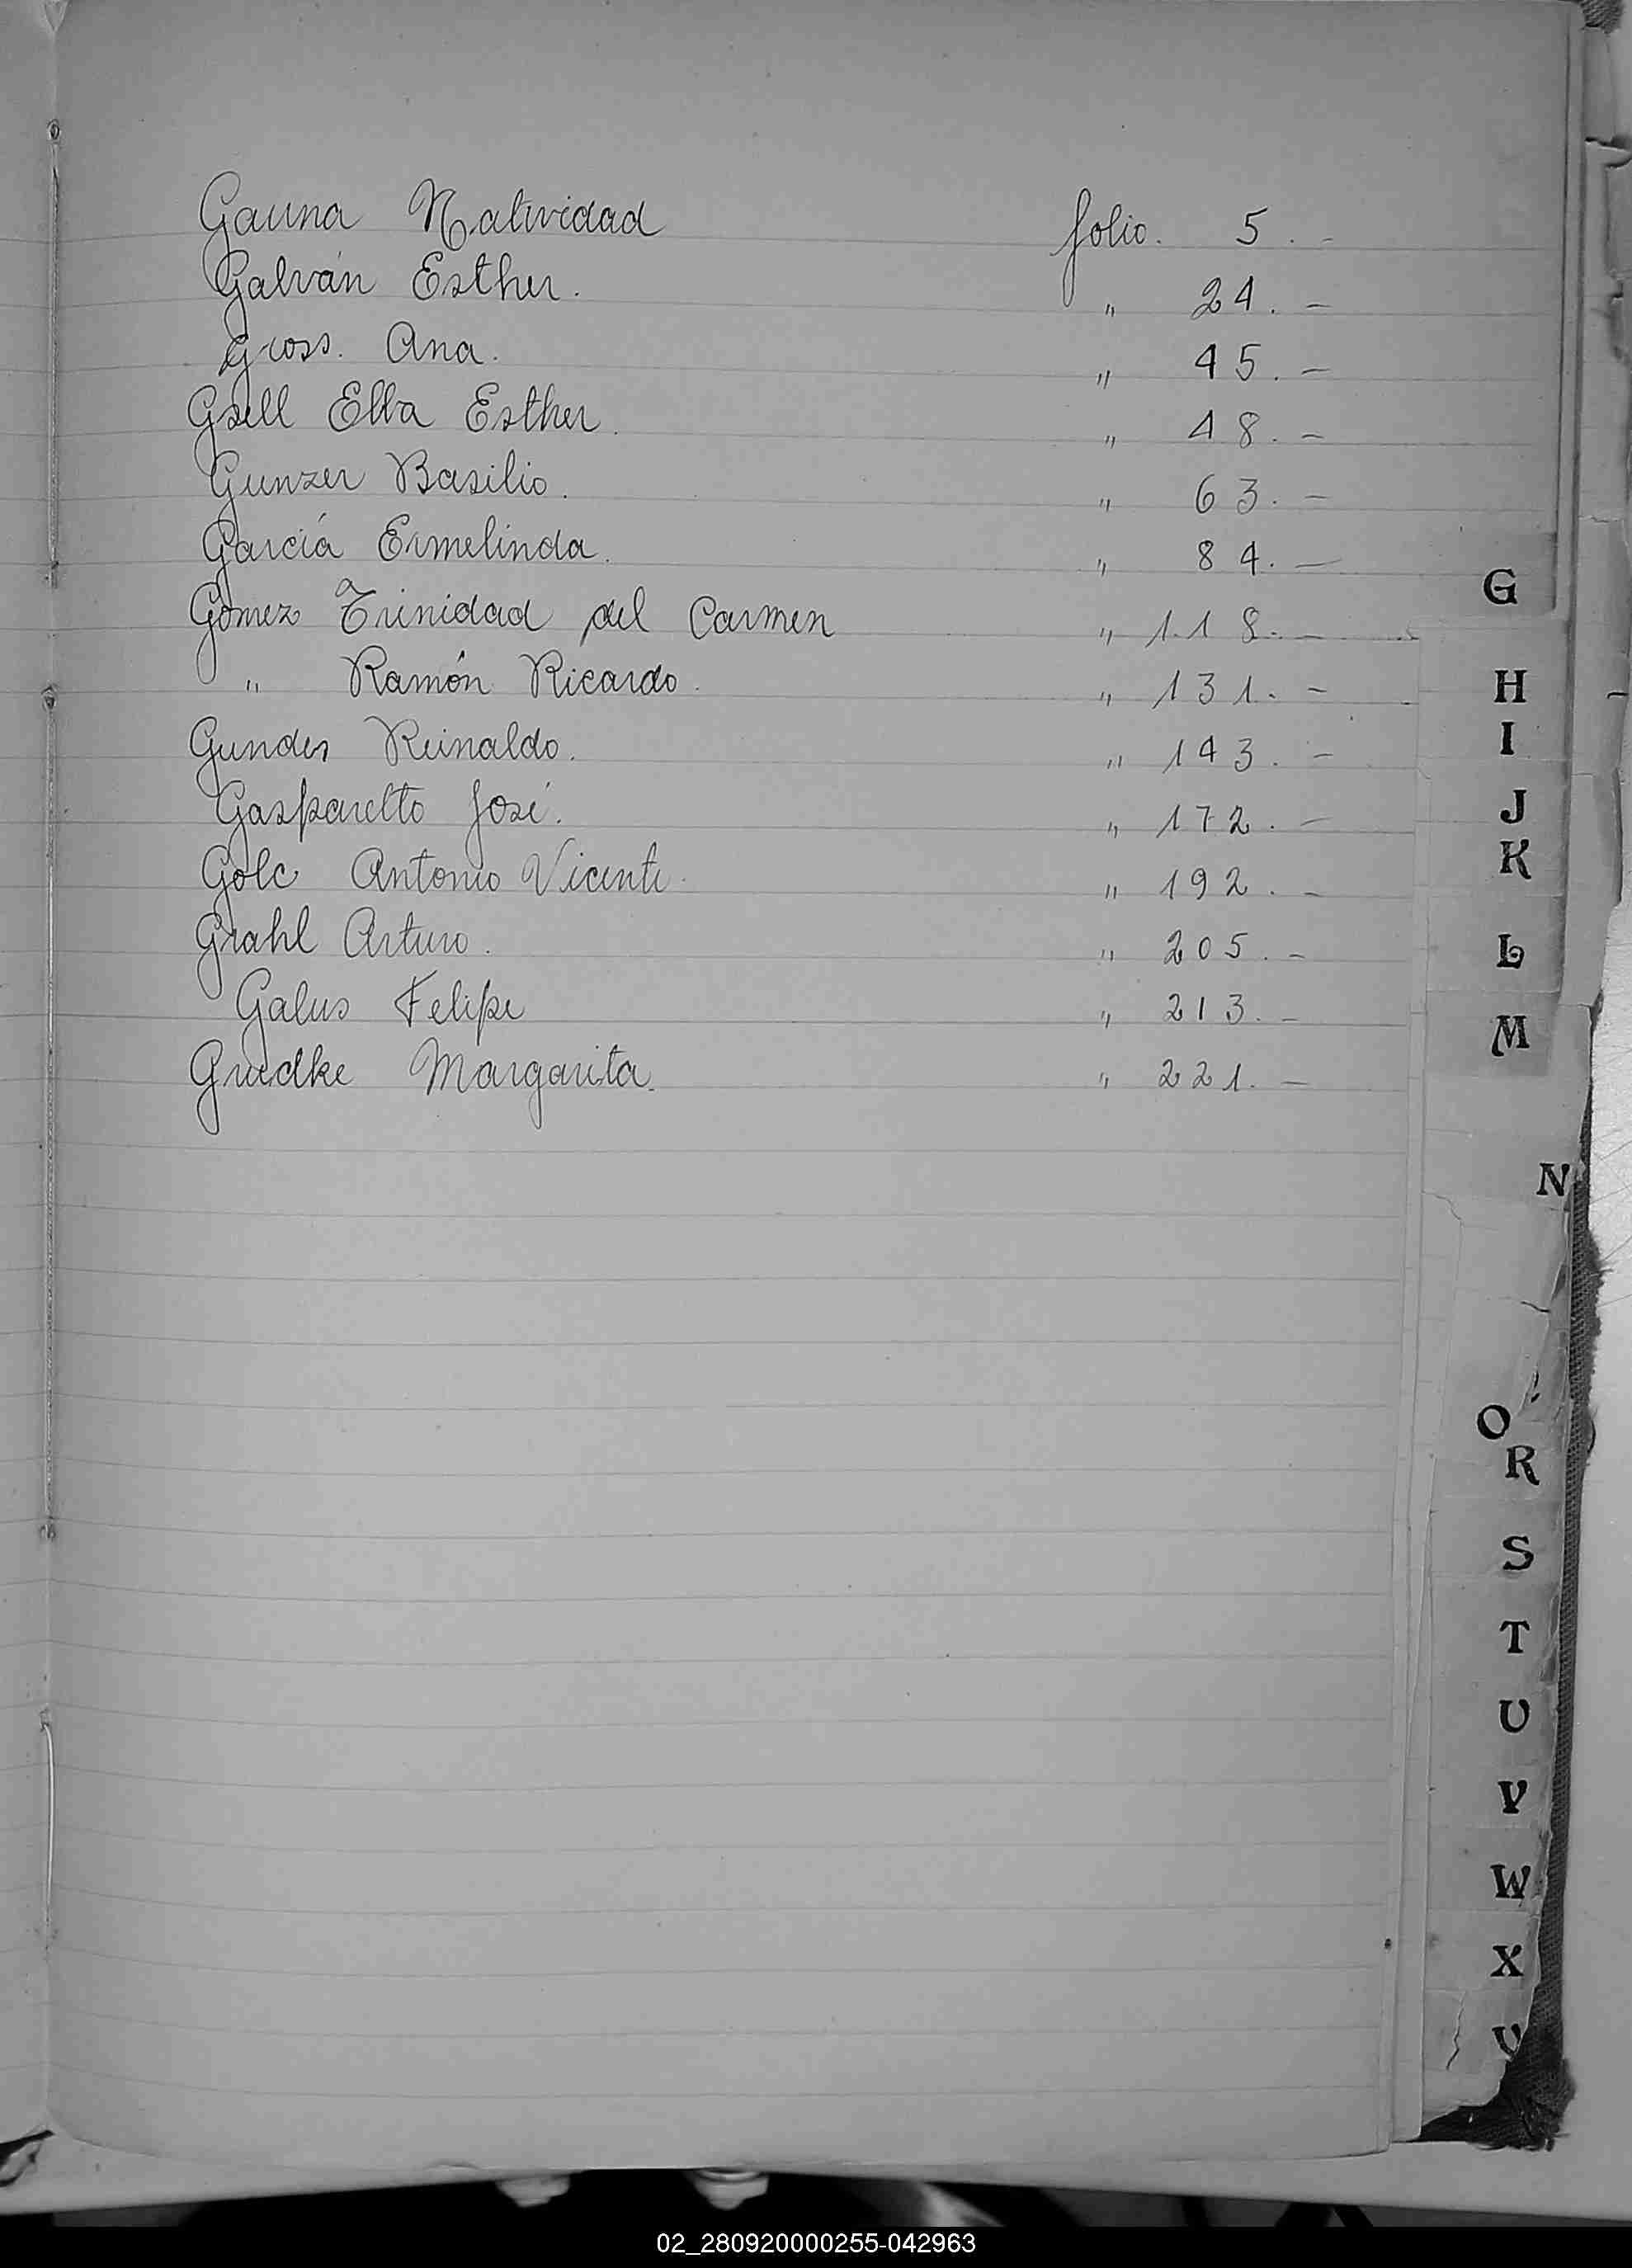 Gauna Natividad folio. 5. -
Galván Esther. " 24. -
Gross. Ana. " 45. -
Gsell Elba Esther. " 48. -
Gunzer Basilio. " 63. -
García Ermelinda. " 84. -
Gómez Trinidad del Carmen " 118. -
" Ramón Ricardo. " 131. -
Gunder Reinaldo. " 143. -
Gasparetto José. " 172. -
Golc Antonio Vicente. " 192. -
Grahl Arturo. " 205. -
Galus Felipe " 213. -
Margarita. " 221. -
G
H
I
J
K
L
M
N
O
R
S
T
U
V
W
X
02_280920000255-042963